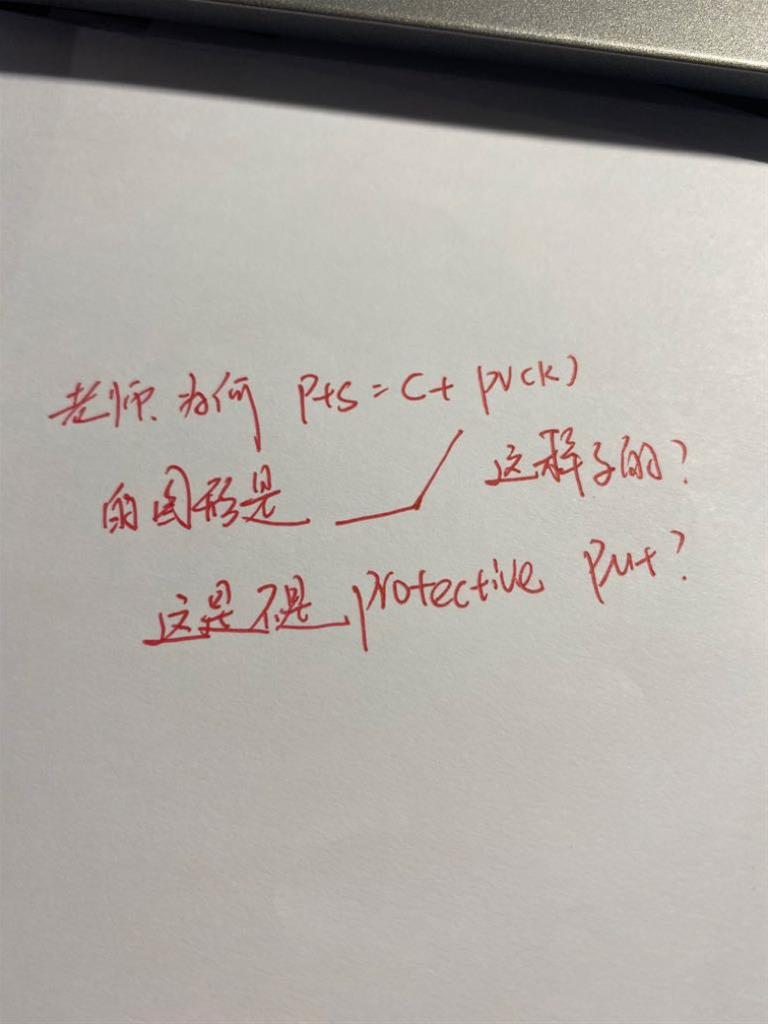 老师.为何 P+S = C+ PV(K)
的图形是 这样子的?
这是不是 protective put?